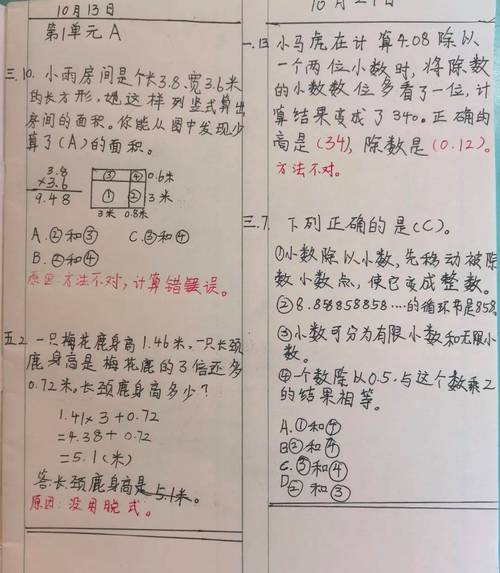 10月13日
第1单元 A
三.10. 小雨房间是个长3.8、宽3.6米
的长方形,她这样列竖式算出
房间的面积。你能从图中发现少
算了(A)的面积。
3.8
×3.6
9.48
③ ④ 0.6米
① ② 3米
3米 0.8米
A.②和③ C.③和④
B.②和④
原因:方法不对,计算错误。
五2. 一只梅花鹿身高1.46米,一只长颈
鹿身高是梅花鹿的3倍还多
0.72米,长颈鹿身高多少?
1.41×3+0.72
=4.38+0.72
=5.1(米)
答:长颈鹿身高是5.1米。
原因:没用脱式。
一.13. 小马虎在计算4.08除以
一个两位小数时,将除数
的小数数位多看了一位,计
算结果变成了340。正确的
商是(34),除数是(0.12)。
方法不对。
三.7. 下列正确的是(C)。
①小数除以小数,先移动被除
数小数点,使它变成整数。
②8.858858858....的循环节是858
③小数可分为有限小数和无限小
数。
④一个数除以0.5.与这个数乘2
的结果相等。
A.①和④
B②和④
C.③和④
D②和③